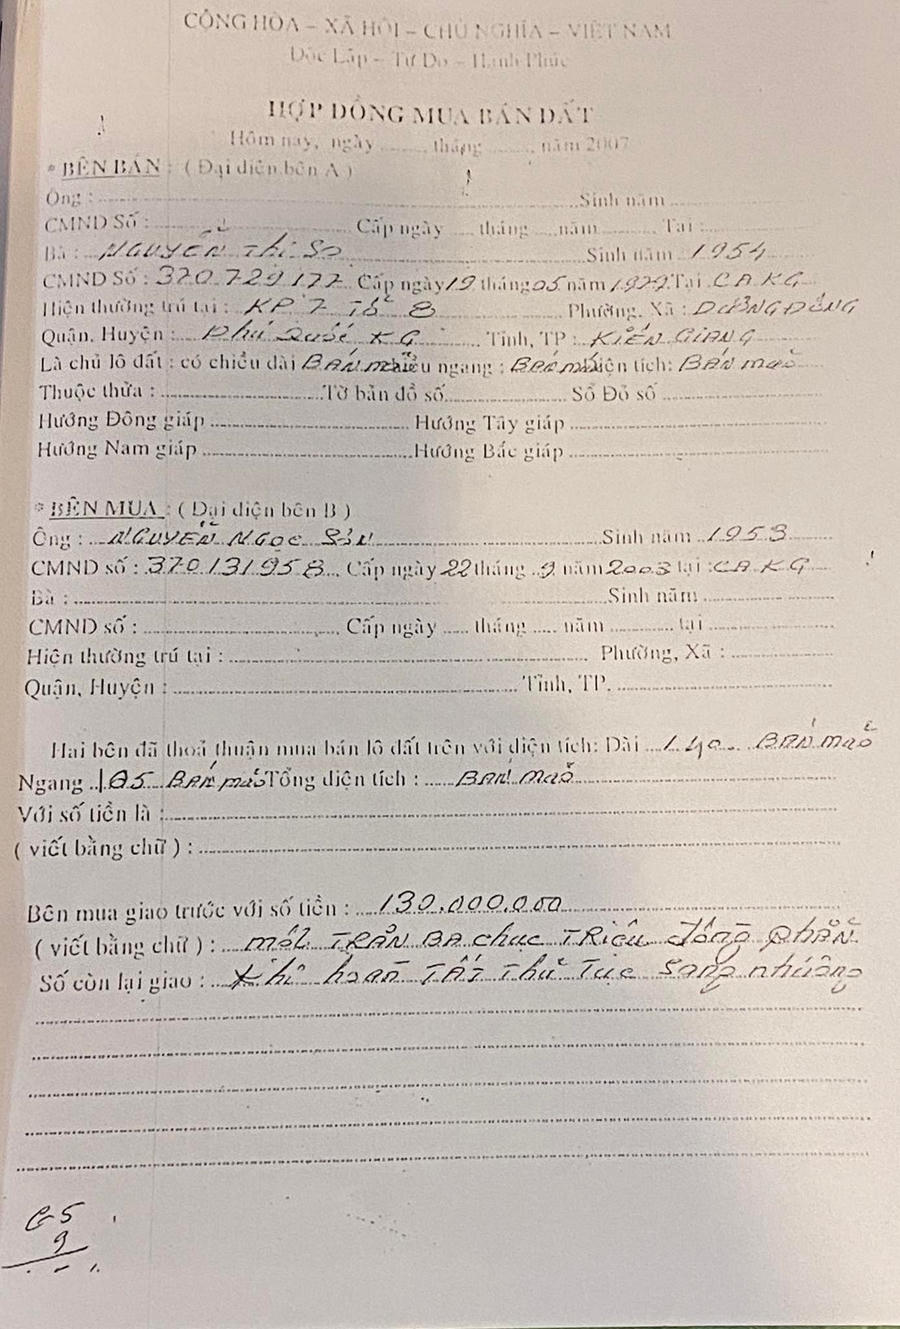 CỘNG HÒA – XÃ HỘI – CHỦ NGHĨA – VIỆT NAM
Độc Lập – Tự Do – Hạnh Phúc
HỢP ĐỒNG MUA BÁN ĐẤT
Hôm nay, ngày ........ tháng ........, năm 2007
* BÊN BÁN : ( Đại diện bên A )
Ông : ........ Sinh năm ........
CMND Số : ........ Cấp ngày .... tháng .... năm ........ Tại : ........
Bà : NGUYỄN Thị Sa Sinh năm 1954
CMND Số : 370.729.177 Cấp ngày 19 tháng 05 năm 1979 Tại CA KG
Hiện thường trú tại : KP 7 Tổ 8 Phường, Xã : DƯƠNG ĐÔNG
Quận, Huyện : Phú Quốc KG Tỉnh, TP : KIÊN GIANG
Là chủ lô đất : có chiều dài BÁN mão chiều ngang : BÁN mão diện tích: BÁN mão
Thuộc thửa : ........ Tờ bản đồ số ........ Sổ Đỏ số ........
Hướng Đông giáp ........ Hướng Tây giáp ........
Hướng Nam giáp ........ Hướng Bắc giáp ........
* BÊN MUA : ( Đại diện bên B )
Ông : NGUYỄN NGỌC Sửu Sinh năm 1953
CMND số : 370131958 Cấp ngày 22 tháng 9 năm 2003 tại : CA KG
Bà : ........ Sinh năm ........
CMND số : ........ Cấp ngày .... tháng .... năm ........ tại ........
Hiện thường trú tại : ........ Phường, Xã : ........
Quận, Huyện : ........ Tỉnh, TP. ........
Hai bên đã thoả thuận mua bán lô đất trên với diện tích: Dài BÁN maõ
Ngang BÁN maõ Tổng diện tích : BÁN maõ
Với số tiền là : ........
( viết bằng chữ ) : ........
Bên mua giao trước với số tiền : 130.000.000
( viết bằng chữ ) : mốt TRĂM BA chục TRiệu đồng chẳN
Số còn lại giao : Khi hoàn TẤT Thủ Tục Sang nhượng